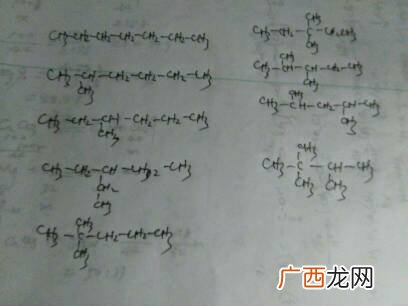 CH3-CH2-CH2-CH2-CH2-CH2-CH3
CH3-CH-CH2-CH2-CH2-CH3
CH3
CH3-CH2-CH-CH2-CH2-CH3
CH3
CH3-CH2-CH-CH2-CH3
CH2
CH3
CH3
CH3-C-CH2-CH2-CH3
CH3
CH3
CH3-CH2-C-CH2CH3
CH3
CH3
CH3-CH-CH-CH2-CH3
CH3
CH3
CH3-CH-CH2-CH-CH3
CH3
CH3
CH3-C-CH-CH3
CH3 CH3
广西龙网